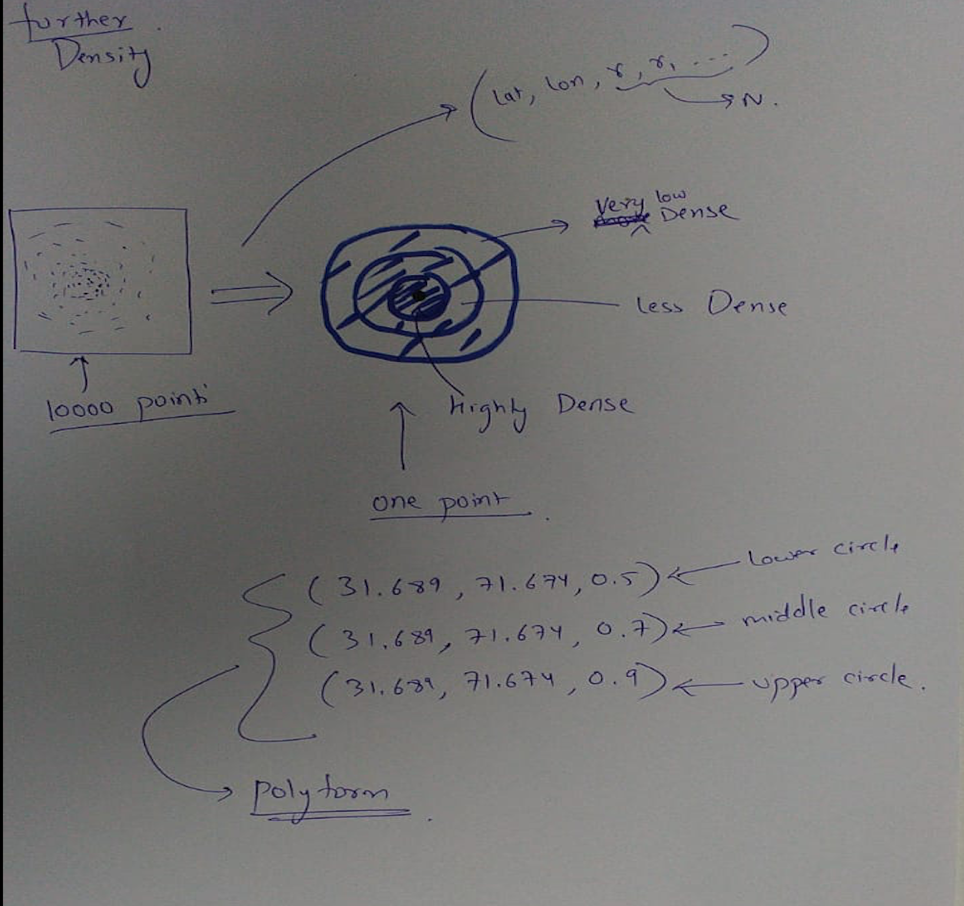 further
Density
(lat, lon, r, r, ...)
N.
very low Dense
less Dense
10000 point
Highly Dense
one point.
(31.689, 71.674, 0.5) lower circle
(31.689, 71.674, 0.7) middle circle
(31.689, 71.674, 0.9) upper circle.
polyform.